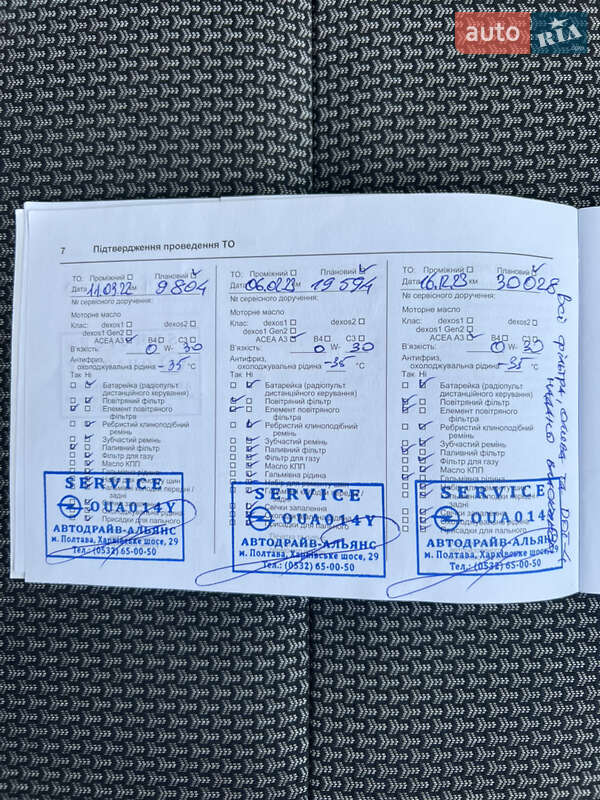 auto RIA
7 Підтвердження проведення ТО
ТО: Проміжний Плановий
Дата 11.03.22 км 9804
№ сервісного доручення:
Моторне масло
Клас: dexos1 dexos2
dexos1 Gen2
ACEA A3 B4 C3
В'язкість: 0 W- 30
Антифриз,
охолоджувальна рідина -35 °C
Так Ні
Батарейка (радіопульт
дистанційного керування)
Повітряний фільтр
Елемент повітряного
фільтра
Ребристий клиноподібний
ремінь
Зубчастий ремінь
Паливний фільтр
Фільтр для газу
Масло КПП
Гальмівна рідина
SERVICE
OUA014Y
АВТОДРАЙВ-АЛЬЯНС
м. Полтава, Харківське шосе, 29
Тел.: (0532) 65-00-50
ТО: Проміжний Плановий
Дата км 19 594
№ сервісного доручення:
Моторне масло
Клас: dexos1 dexos2
dexos1 Gen2
ACEA A3 B4 C3
В'язкість: 0 W- 30
Антифриз,
охолоджувальна рідина -35 °C
Так Ні
Батарейка (радіопульт
дистанційного керування)
Повітряний фільтр
Елемент повітряного
фільтра
Ребристий клиноподібний
ремінь
Зубчастий ремінь
Паливний фільтр
Фільтр для газу
Масло КПП
Гальмівна рідина
SERVICE
OUA014Y
АВТОДРАЙВ-АЛЬЯНС
м. Полтава, Харківське шосе, 29
Тел.: (0532) 65-00-50
ТО: Проміжний Плановий
Дата 16.12.23 км 30 028
№ сервісного доручення:
Моторне масло
Клас: dexos1 dexos2
dexos1 Gen2
ACEA A3 B4 C3
В'язкість: 0 W- 30
Антифриз,
охолоджувальна рідина -35 °C
Так Ні
Батарейка (радіопульт
дистанційного керування)
Повітряний фільтр
Елемент повітряного
фільтра
Ребристий клиноподібний
ремінь
Зубчастий ремінь
Паливний фільтр
Фільтр для газу
Масло КПП
Гальмівна рідина
SERVICE
OUA014Y
АВТОДРАЙВ-АЛЬЯНС
м. Полтава, Харківське шосе, 29
Тел.: (0532) 65-00-50
Всі фільтра, олива та DOT-4
надано